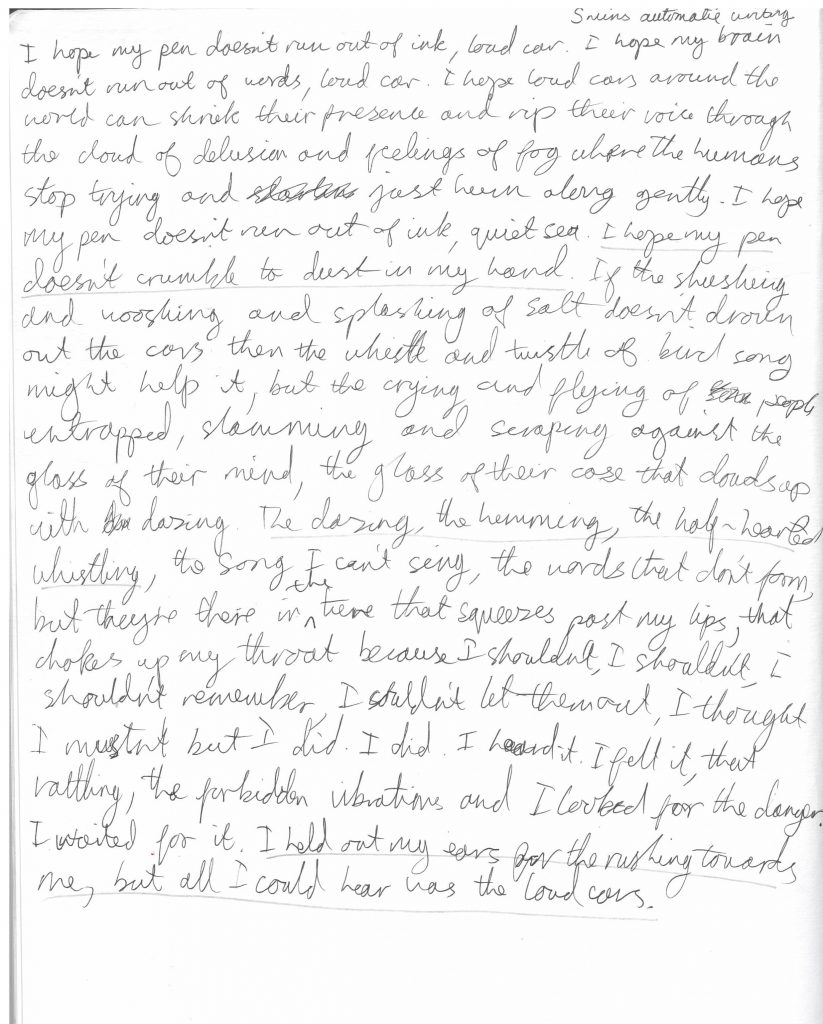 5 mins automatic writing
I hope my pen doesn't run out of ink, loud car. I hope my brain
doesn't run out of words, loud car. I hope loud cars around the
world can shriek their presence and rip their voice through
the cloud of delusion and feelings of fog where the humans
stop trying and just hum along gently. I hope
my pen doesn't run out of ink, quiet sea. I hope my pen
doesn't crumble to dust in my hand. If the shushing
and wooshing and splashing of salt doesn't drown
out the cars then the whistle and twistle of bird song
might help it, but the crying and flying of people
entrapped, slamming and scraping against the
glass of their mind, the glass of their case that clouds up
with dazing. The dazing, the hemming, the half-hearted
whistling, the song I can't sing, the words that don't form,
but they're there in the tune that squeezes past my lips, that
chokes up my throat because I shouldn't, I shouldn't, I
shouldn't remember, I shouldn't let them out, I thought
I mustn't but I did. I did. I heard it. I felt it, that
rattling, the forbidden vibrations and I looked for the danger.
I waited for it. I held out my ears for the rushing towards
me, but all I could hear was the loud cars.